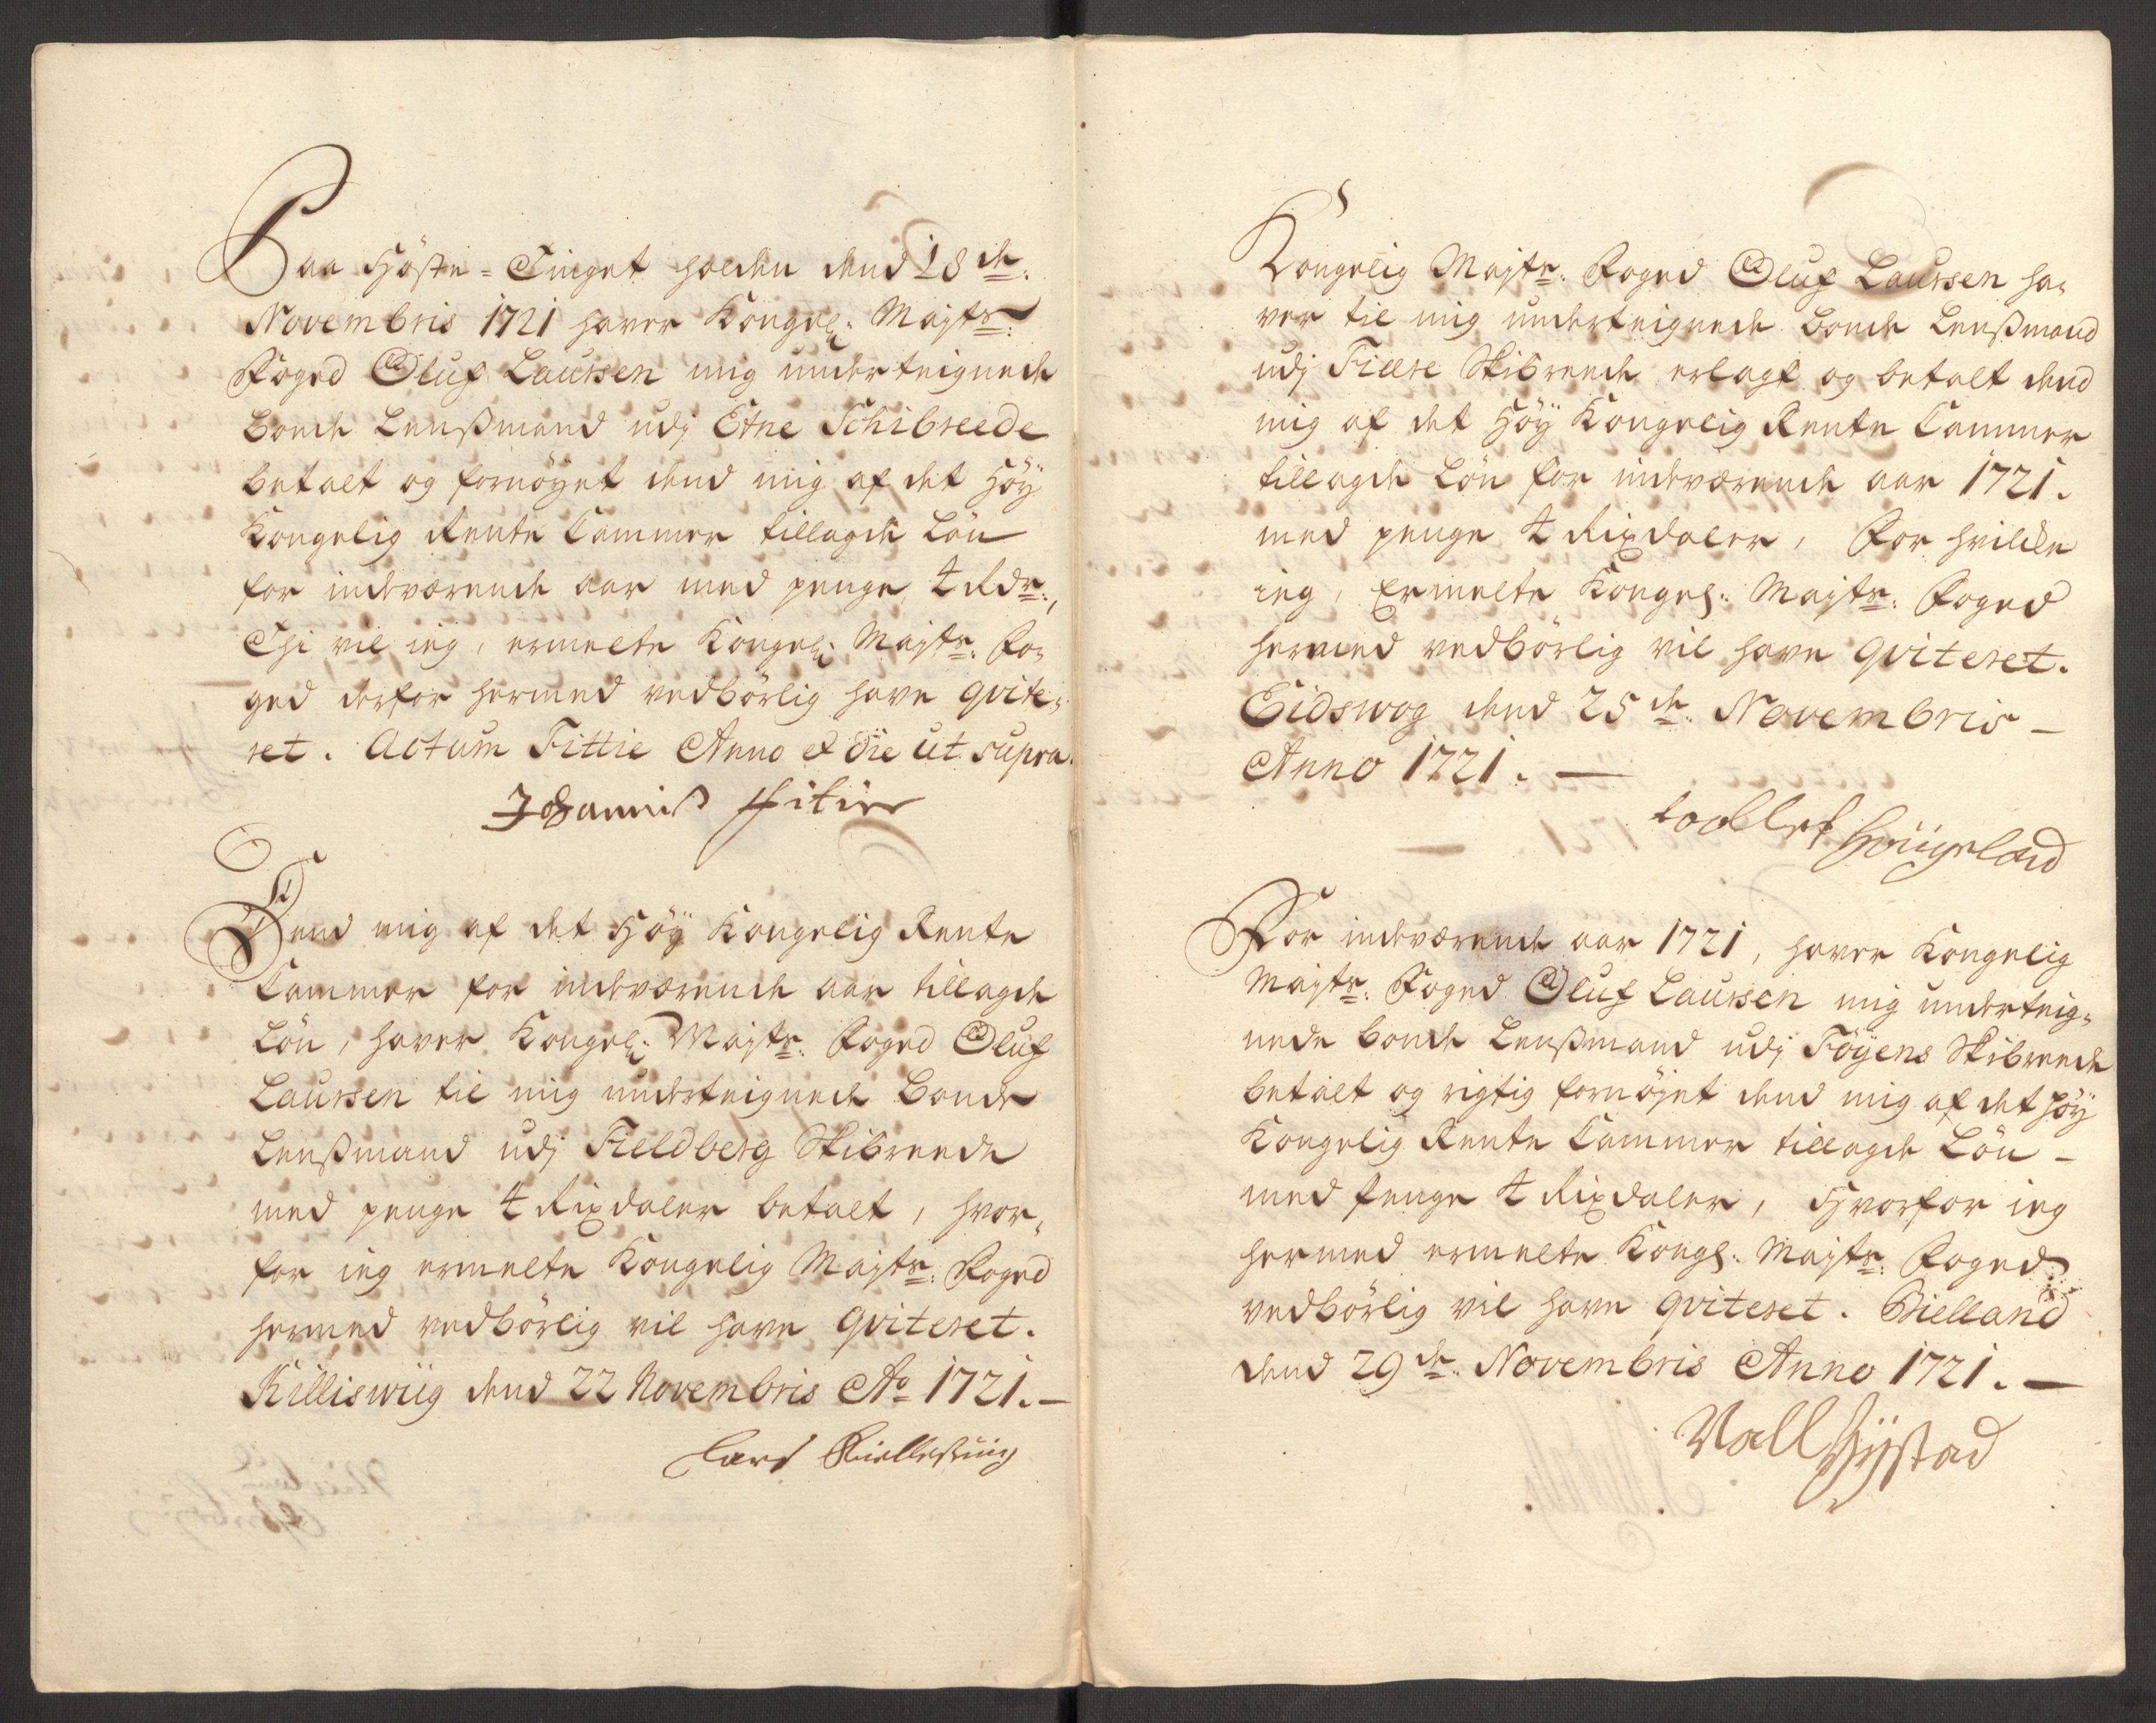 Paa Höste-Tinget holden dend 18de.
Novembris 1721 haver Kongel: Mayts:
Foged Oluf Laursen mig underteignede
Bonde Lensßmand udj Etne Schibreede
betalt og fornöyet dend mig af det Höy
Kongelig Rente Cammer tillagde Lön
for indeværende aar med penge 4 Rdr.,
Thi vil ieg, ermelte Kongel: Mayts: Fo-
ged derfor hermed vedbörlig have qvite-
ret. Actum Fittie Anno et die ut supra.
Johannis Fitie
Dend mig af det Höy Kongelig Rente
Cammer for indeværende aar tillagde
Lön, haver Kongel: Mayts: Foged Oluf
Laursen til mig underteignede Bonde
Lensßmand udj Fieldberg Skibreede
med penge 4 Rixdaler betalt, hvor-
for ieg ermelte Kongelig Mayts: Foged
hermed vedbörlig vil have qviteret.
Killiswiig dend 22 Novembris Ao 1721.
Lars Kielleswiig
Kongelig Mayts: Foged Oluf Laursen ha-
ver til mig underteignede Bonde Lensßmand
udj Fiere Skibreede erlagt og betalt dend
mig af det Höy Kongelig Rente Cammer
tillagde Lön for indeværende aar 1721.
med penge 4 Rixdaler, For hvilke
ieg, Ermelte Kongel: Mayts: Foged
hermed vedbörlig vil have qviteret.
Eidswog dend 25de. Novembris
Anno 1721.
Toollef Houigeland
For indeværende aar 1721, haver Kongelig
Mayts: Foged Oluf Laursen mig underteig-
nede bonde Lensßmand udj Föyens Skibreede
betalt og rigtig fornöjet dend mig af det Höy
Kongelig Rente Cammer tillagde Lön
med penge 4 Rixdaler, Hvorfor ieg
hermed ermelte Kongl: Mayts: Foged
vedbörlig vil have qviteret. Bielland
dend 29de. Novembris Anno 1721.